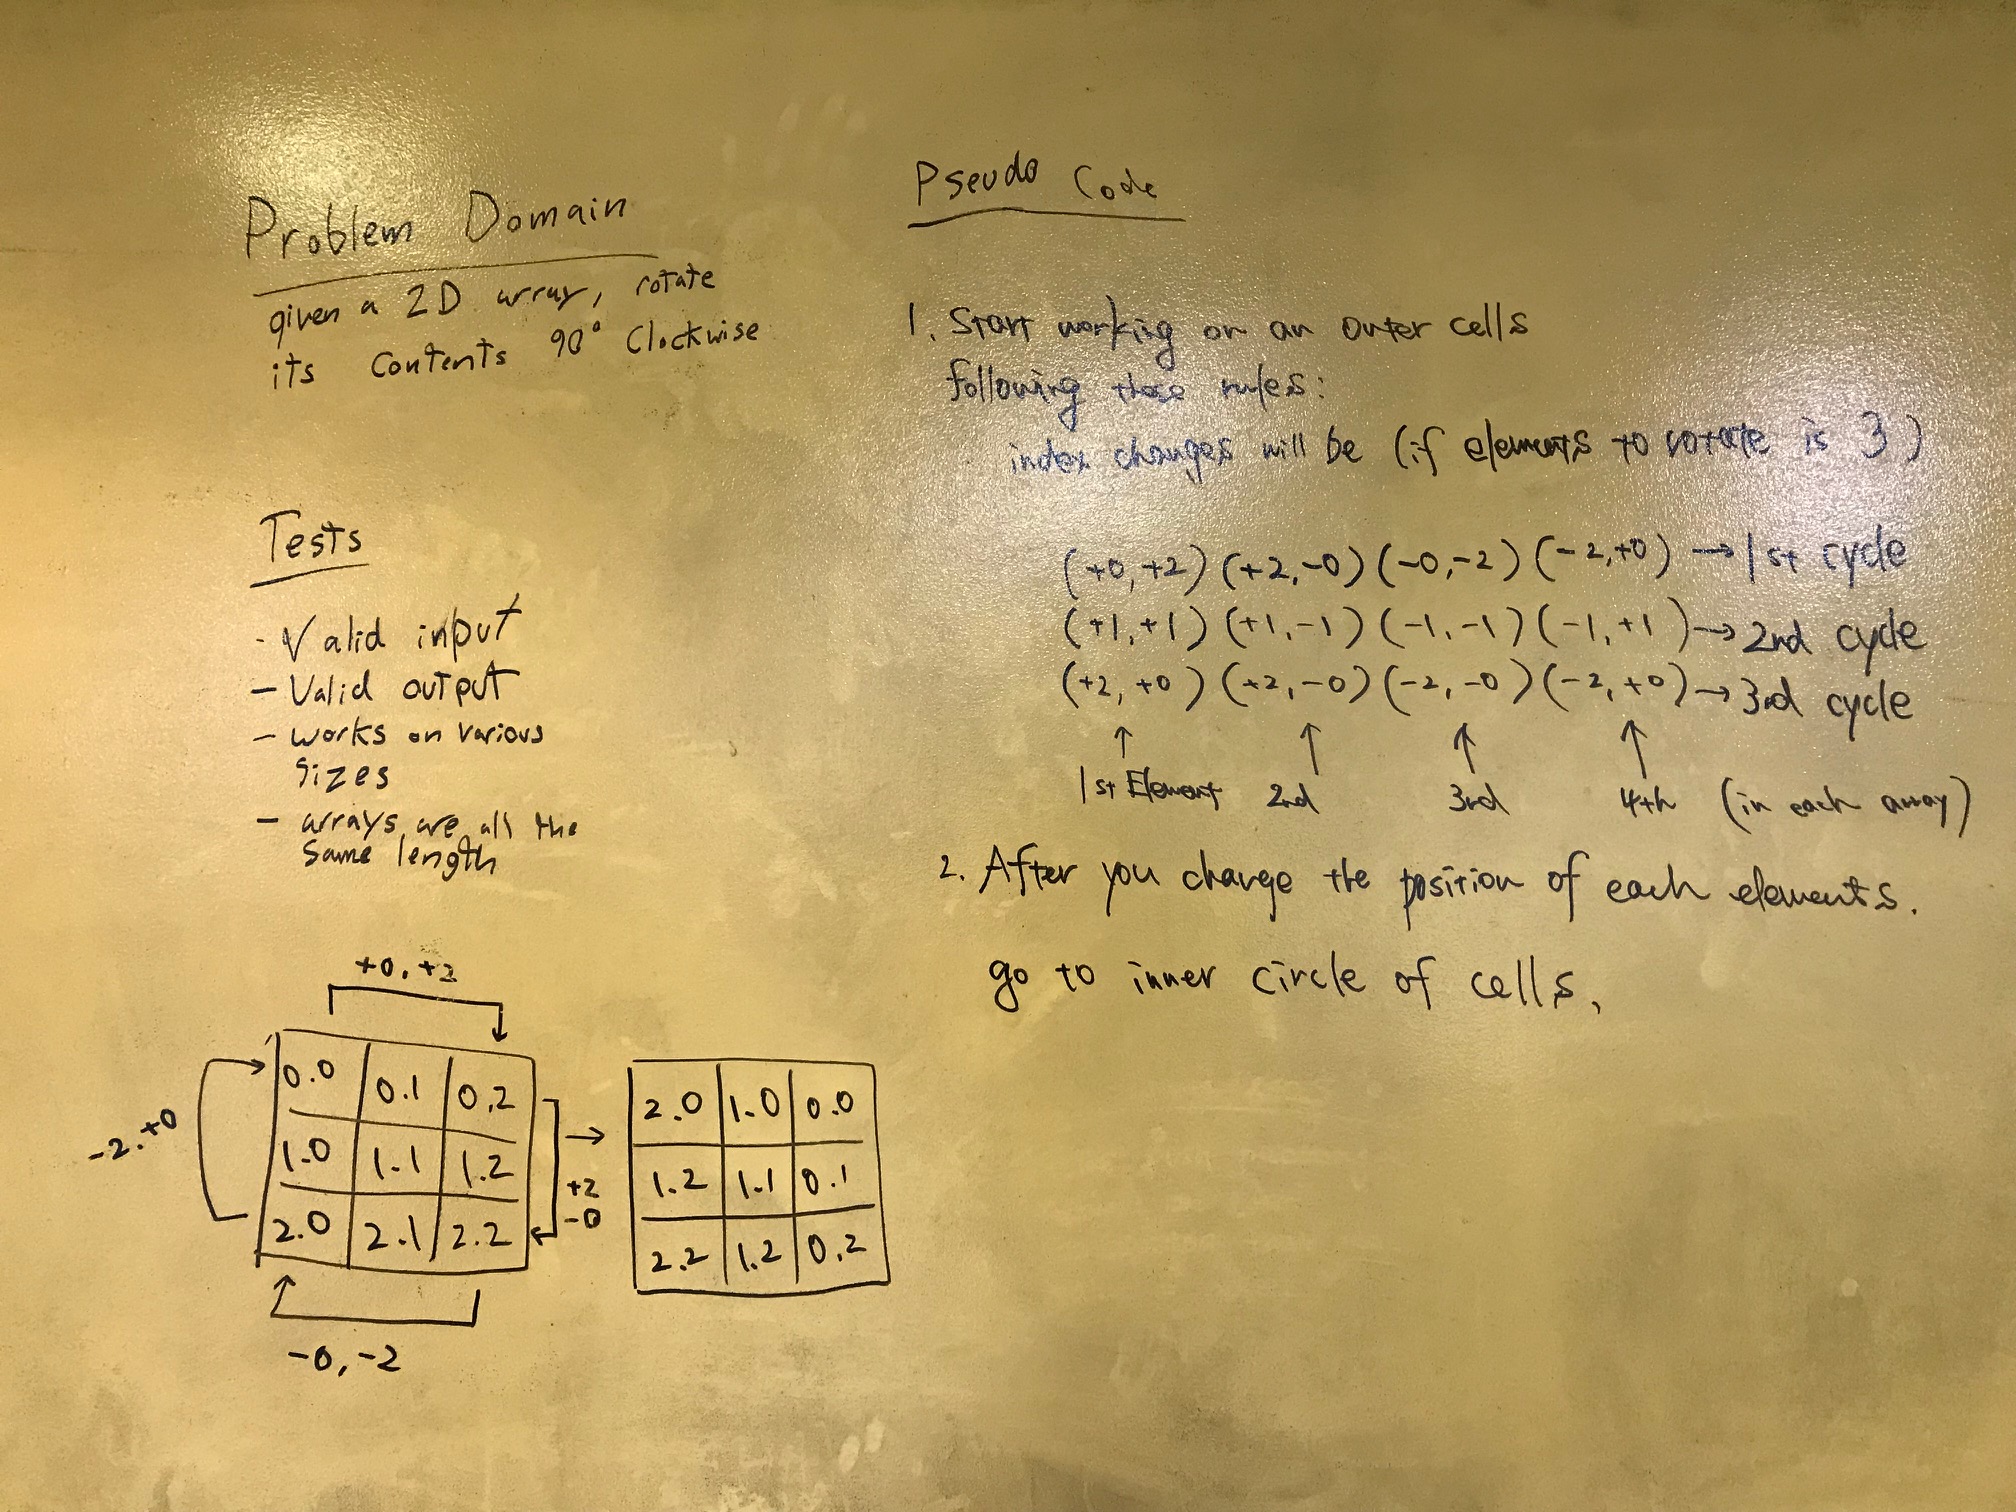 Problem Domain
given a 2D array, rotate
its contents 90° Clockwise
Tests
- Valid input
- Valid output
- works on various
sizes
- arrays are all the
same length
+0, +2
-2, +0
0.0 0.1 0.2
1.0 1.1 1.2
2.0 2.1 2.2
+2
-0
-0, -2
2.0 1.0 0.0
1.2 1.1 0.1
2.2 1.2 0.2
Pseudo Code
1. Start working on an outer cells
following these rules:
index changes will be (if elements to rotate is 3)
(+0, +2) (+2, -0) (-0, -2) (-2, +0) → 1st cycle
(+1, +1) (+1, -1) (-1, -1) (-1, +1) → 2nd cycle
(+2, +0) (+2, -0) (-2, -0) (-2, +0) → 3rd cycle
↑ ↑ ↑ ↑
1st Element 2nd 3rd 4th (in each array)
2. After you change the position of each elements.
go to inner circle of cells.